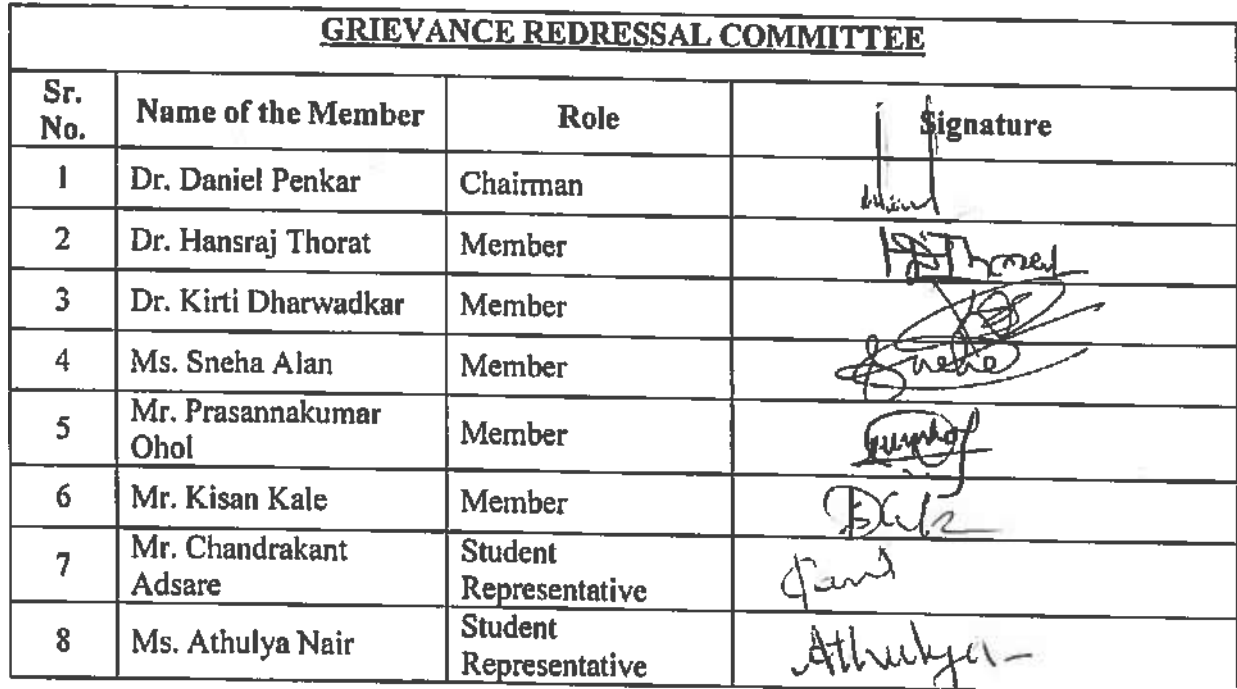 GRIEVANCE REDRESSAL COMMITTEE
Sr. No. Name of the Member Role Signature
1 Dr. Daniel Penkar Chairman
2 Dr. Hansraj Thorat Member
3 Dr. Kirti Dharwadkar Member
4 Ms. Sneha Alan Member Sneha
5 Mr. Prasannakumar Ohol Member
6 Mr. Kisan Kale Member
7 Mr. Chandrakant Adsare Student Representative
8 Ms. Athulya Nair Student Representative Athulya